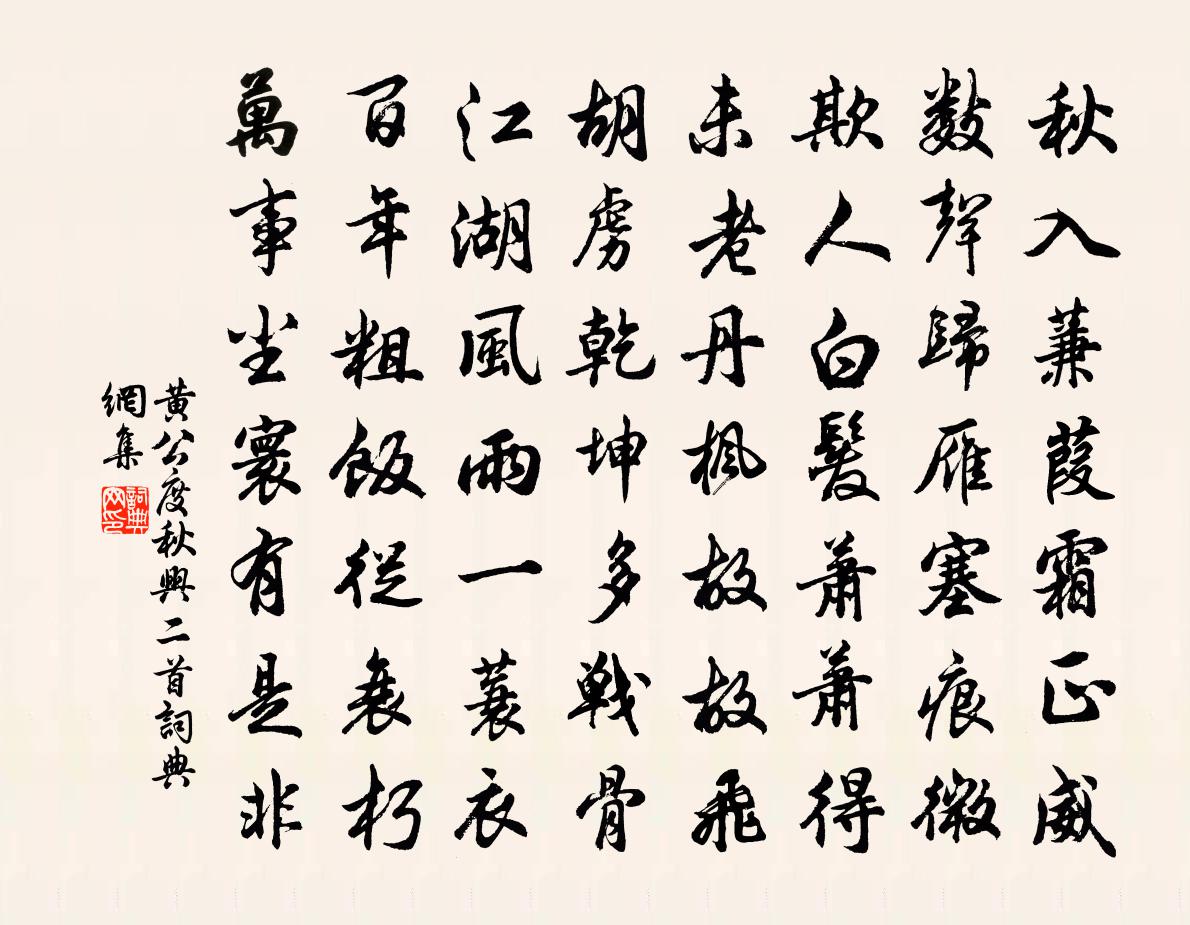 秋入蒹葭霜正威
數聲歸雁塞痕微
欺人白髮蕭蕭得
未老丹楓故故飛
胡虜乾坤多戰骨
江湖風雨一蓑衣
百年粗飯從衰朽
萬事尘寰有是非
黄公度秋興二首詞典
網集
詞典
网印